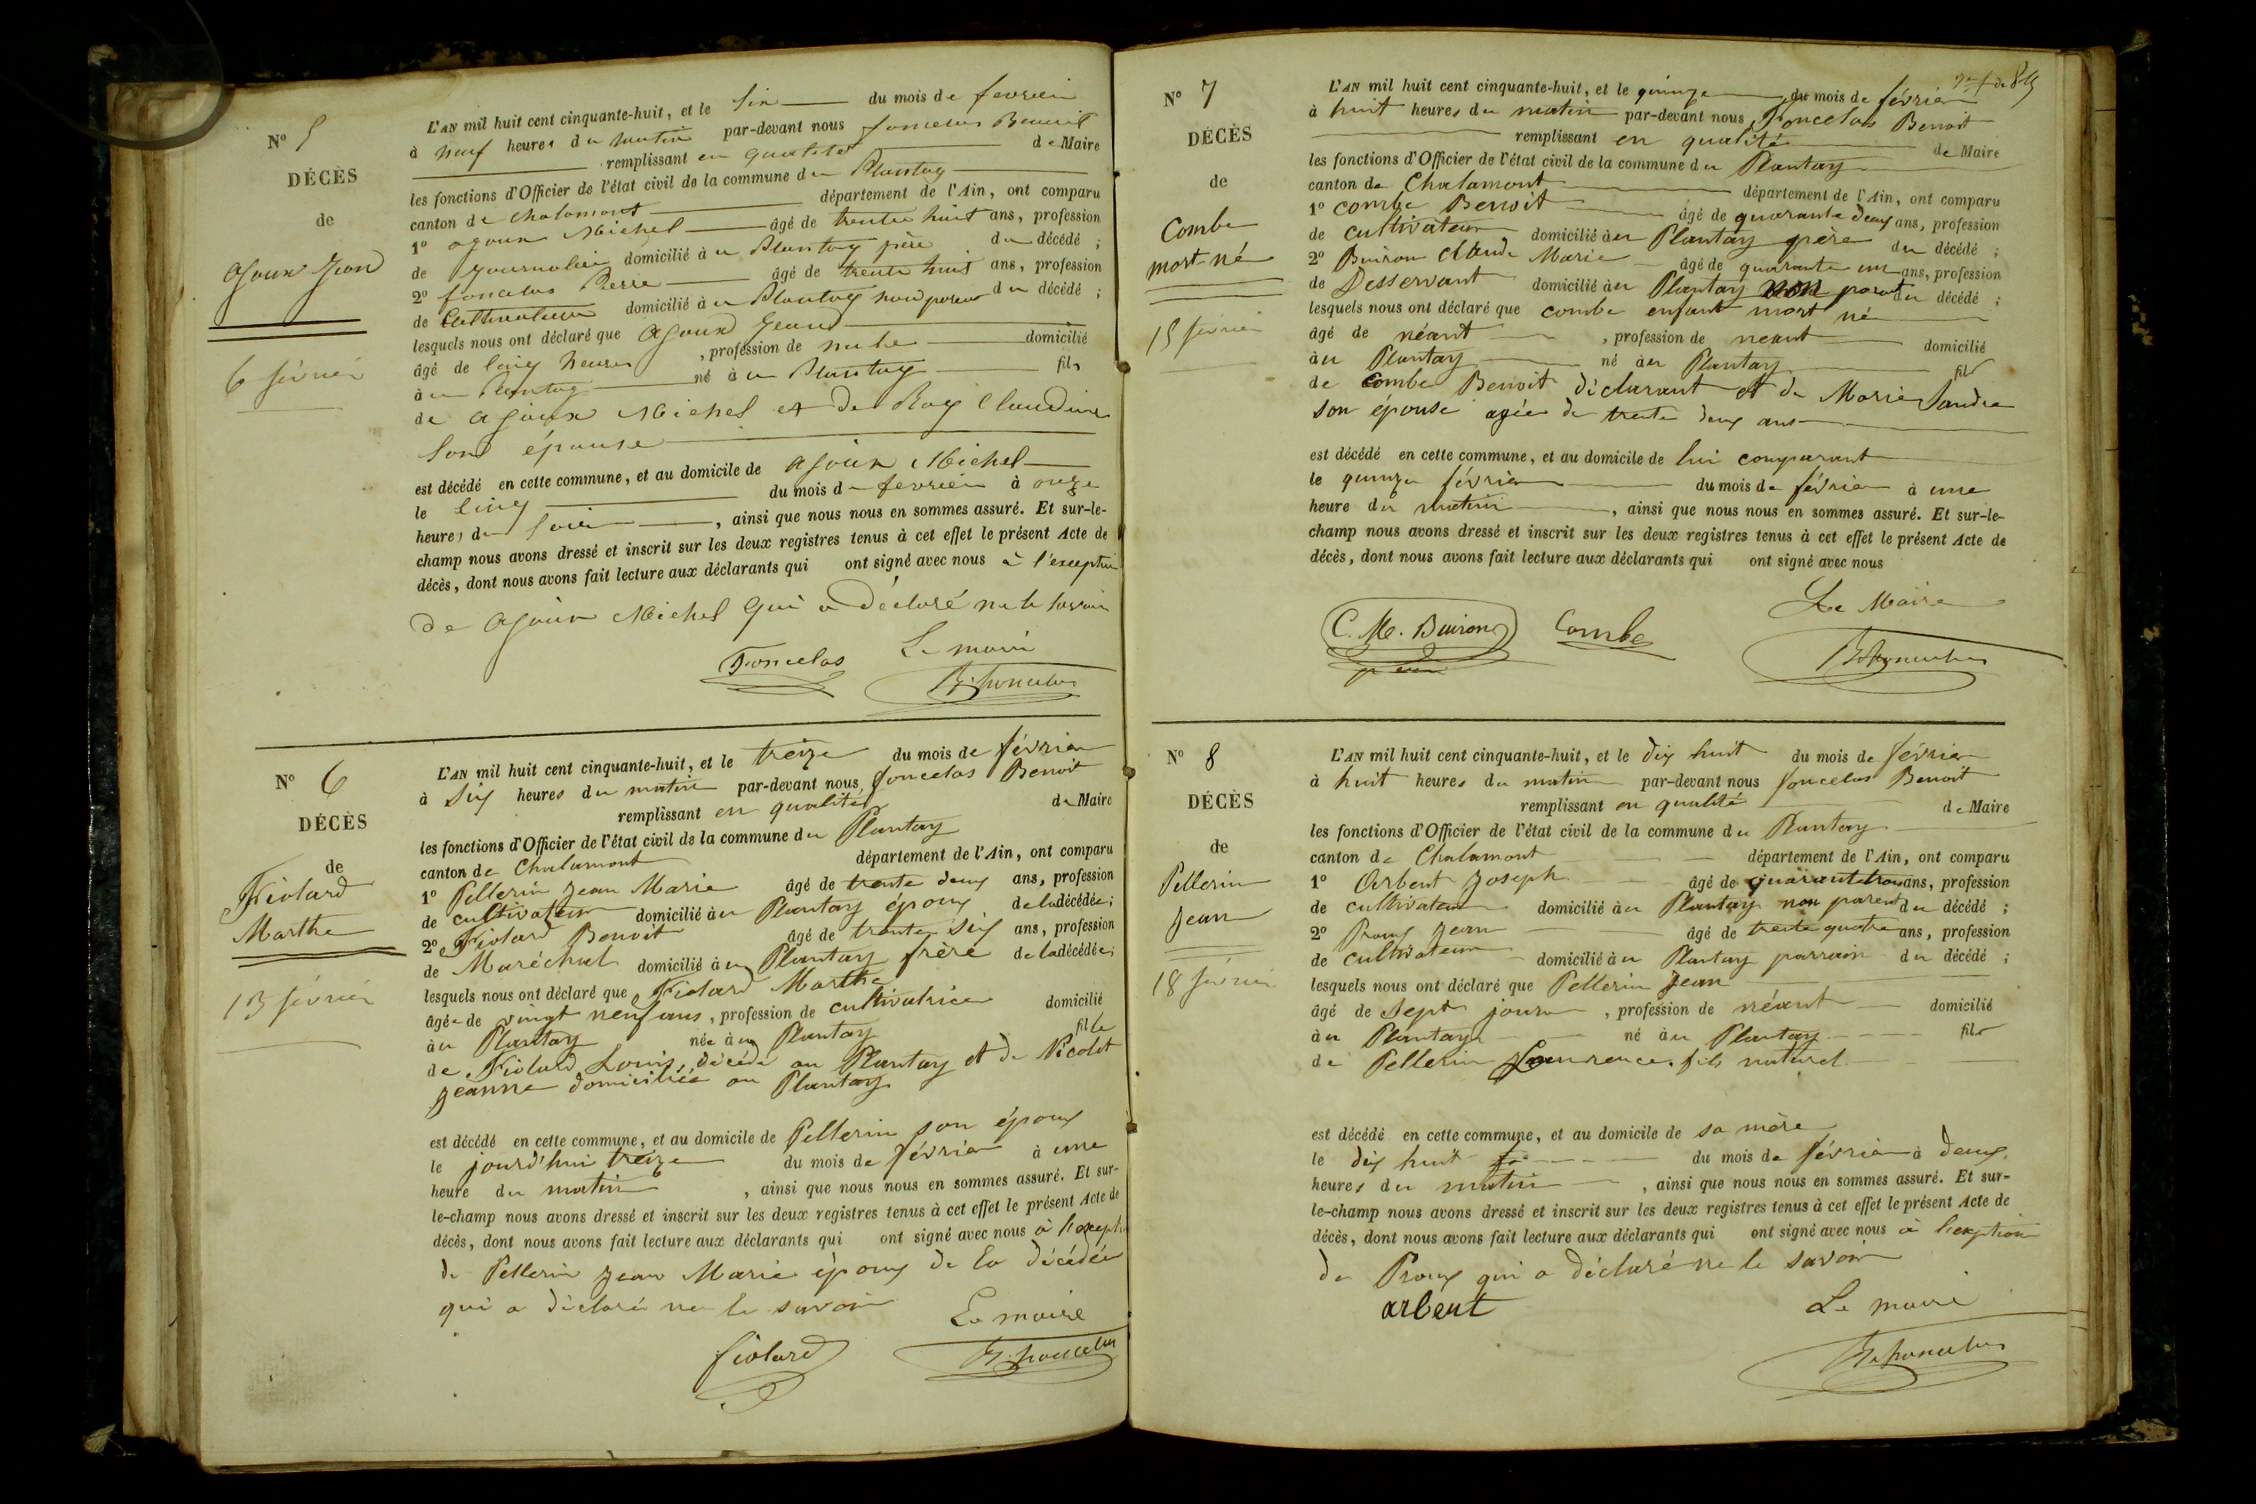 N° 5
DÉCÈS
de
ajoux Jean
6 février
L'AN mil huit cent cinquante-huit, et le Six du mois de fevrier
à neuf heures du matin par-devant nous foncelas Benoit
remplissant en qualité de Maire
les fonctions d'Officier de l'état civil de la commune du Plantay
canton de Chalamont département de l'Ain, ont comparu
1° ajoux Michel âgé de trente huit ans, profession
de journalier domicilié à u Plantay père du décédé ;
2° foncelas Pierre âgé de trente huit ans, profession
de Cultivateur domicilié à u Plantay non parent du décédé ;
lesquels nous ont déclaré que ajoux Jean
âgé de cinq heures, profession de nulle domicilié
à u Plantay né à u Plantay fils
de ajoux Michel et de Roy Claudine
Son épouse
est décédé en cette commune, et au domicile de ajoux Michel
le cinq du mois de fevrier à onze
heures du soir, ainsi que nous nous en sommes assuré. Et sur-le-
champ nous avons dressé et inscrit sur les deux registres tenus à cet effet le présent Acte de
décès, dont nous avons fait lecture aux déclarants qui ont signé avec nous à l'exception
de ajoux Michel qui a déclaré ne le savoir
Foncelas Le maire
B. foncelas
N° 6
DÉCÈS
de
Fiolard
Marthe
13 février
L'AN mil huit cent cinquante-huit, et le treize du mois de février
à Six heures du matin par-devant nous, foncelas Benoit
remplissant en qualité de Maire
les fonctions d'Officier de l'état civil de la commune du Plantay
canton de Chalamont département de l'Ain, ont comparu
1° Pellerin Jean Marie âgé de trente deux ans, profession
de cultivateur domicilié à u Plantay époux de la décédée ;
2° Fiolard Benoit âgé de trente six ans, profession
de Maréchal domicilié à u Plantay frère de la décédée ;
lesquels nous ont déclaré que Fiolard Marthe
âgée de vingt neuf ans, profession de cultivatrice domicilié
à u Plantay née à u Plantay fille
de Fiolard Louis, décédé au Plantay et de Nicolet
Jeanne domiciliée au Plantay
est décédé en cette commune, et au domicile de Pellerin son époux
le jourd'hui treize du mois de février à une
heure du matin, ainsi que nous nous en sommes assuré. Et sur-
le-champ nous avons dressé et inscrit sur les deux registres tenus à cet effet le présent Acte de
décès, dont nous avons fait lecture aux déclarants qui ont signé avec nous à l'excepti
de Pellerin Jean Marie époux de la décédée
qui a déclaré ne le savoir
Le maire
fiolard B. foncelas
N° 7
DÉCÈS
de
Combe
mort-né
15 février
L'AN mil huit cent cinquante-huit, et le quinze du mois de février
à huit heures du matin par-devant nous, Foncelas Benoit
remplissant en qualité de Maire
les fonctions d'Officier de l'état civil de la commune du Plantay
canton de Chalamont département de l'Ain, ont comparu
1° combe Benoit âgé de quarante deux ans, profession
de cultivateur domicilié à u Plantay père du décédé ;
2° Buiron Claude Marie âgé de quarante un ans, profession
de Desservant domicilié à u Plantay non parent du décédé ;
lesquels nous ont déclaré que combe enfant mort né
âgé de néant, profession de neant domicilié
à u Plantay né à u Plantay fils
de Combe Benoit déclarant et de Marie Sandra
son épouse agée de trente deux ans
est décédé en cette commune, et au domicile de lui comparant
le quinze février du mois de février à une
heure du matin, ainsi que nous nous en sommes assuré. Et sur-le-
champ nous avons dressé et inscrit sur les deux registres tenus à cet effet le présent Acte de
décès, dont nous avons fait lecture aux déclarants qui ont signé avec nous
Le Maire
C. M. Buiron Combe
B. foncelas
N° 8
DÉCÈS
de
Pellerin
Jean
18 février
L'AN mil huit cent cinquante-huit, et le dix huit du mois de février
à huit heures du matin par-devant nous foncelas Benoit
remplissant en qualité de Maire
les fonctions d'Officier de l'état civil de la commune du Plantay
canton de Chalamont département de l'Ain, ont comparu
1° Arbent Joseph âgé de quarante trois ans, profession
de cultivateur domicilié à u Plantay non parent du décédé ;
2° Proux Jean âgé de trente quatre ans, profession
de cultivateur domicilié à u Plantay parrain du décédé ;
lesquels nous ont déclaré que Pellerin Jean
âgé de sept jours, profession de néant domicilié
à u Plantay né à u Plantay fils
de Pellerin Laurence, fils naturel
est décédé en cette commune, et au domicile de sa mère
le dix huit du mois de février à deux
heures du matin, ainsi que nous nous en sommes assuré. Et sur-
le-champ nous avons dressé et inscrit sur les deux registres tenus à cet effet le présent Acte de
décès, dont nous avons fait lecture aux déclarants qui ont signé avec nous à l'exeption
de Proux qui a déclaré ne le savoir
arbent Le maire
B. foncelas